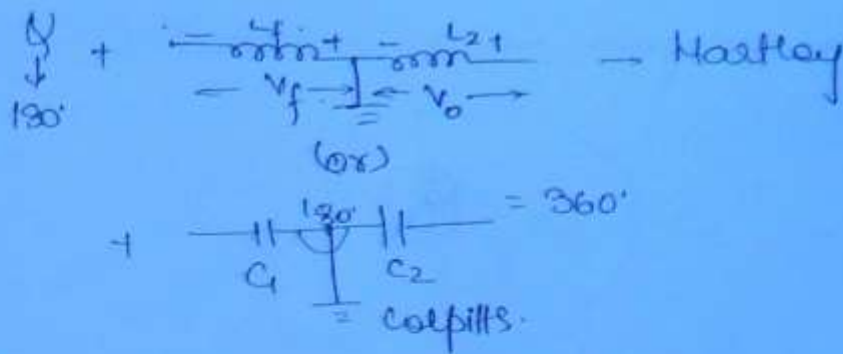 + - L1 + - L2 + - Hartley
↓ ← Vf → ← Vo →
180°
(or)
+ 180° = 360°
C1 C2
= colpitts.